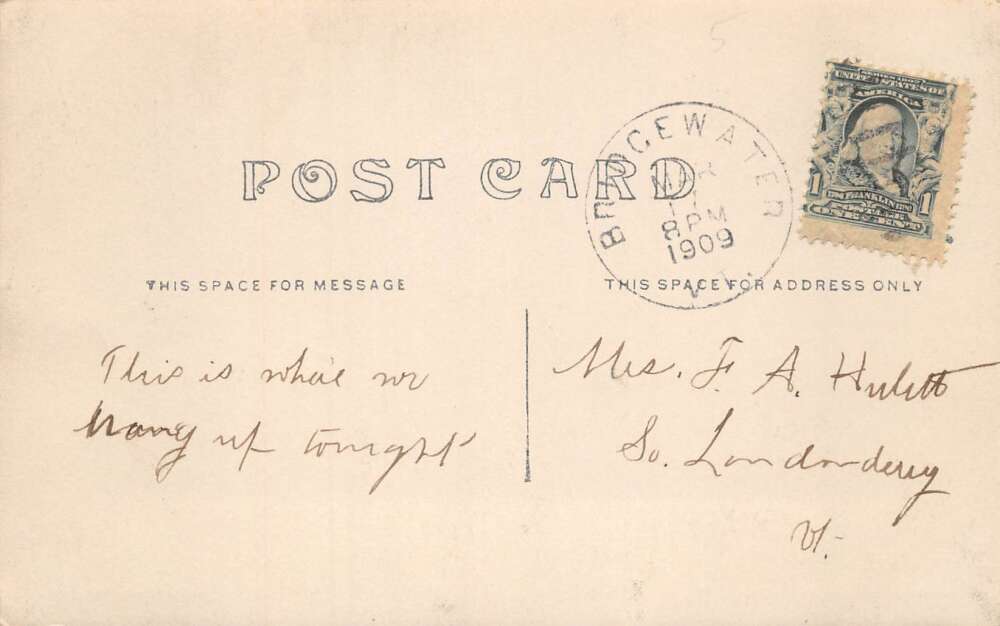 5
SERIES 1902
UNITED STATES OF
AMERICA
1 FRANKLIN 1
ONE CENT
BRIDGEWATER
MAR
8 PM
1909
VT.
POST CARD
THIS SPACE FOR MESSAGE
THIS SPACE FOR ADDRESS ONLY
This is where we
hang up tonight
Mrs. F. A. Hulett
So. Londonderry
Vt.